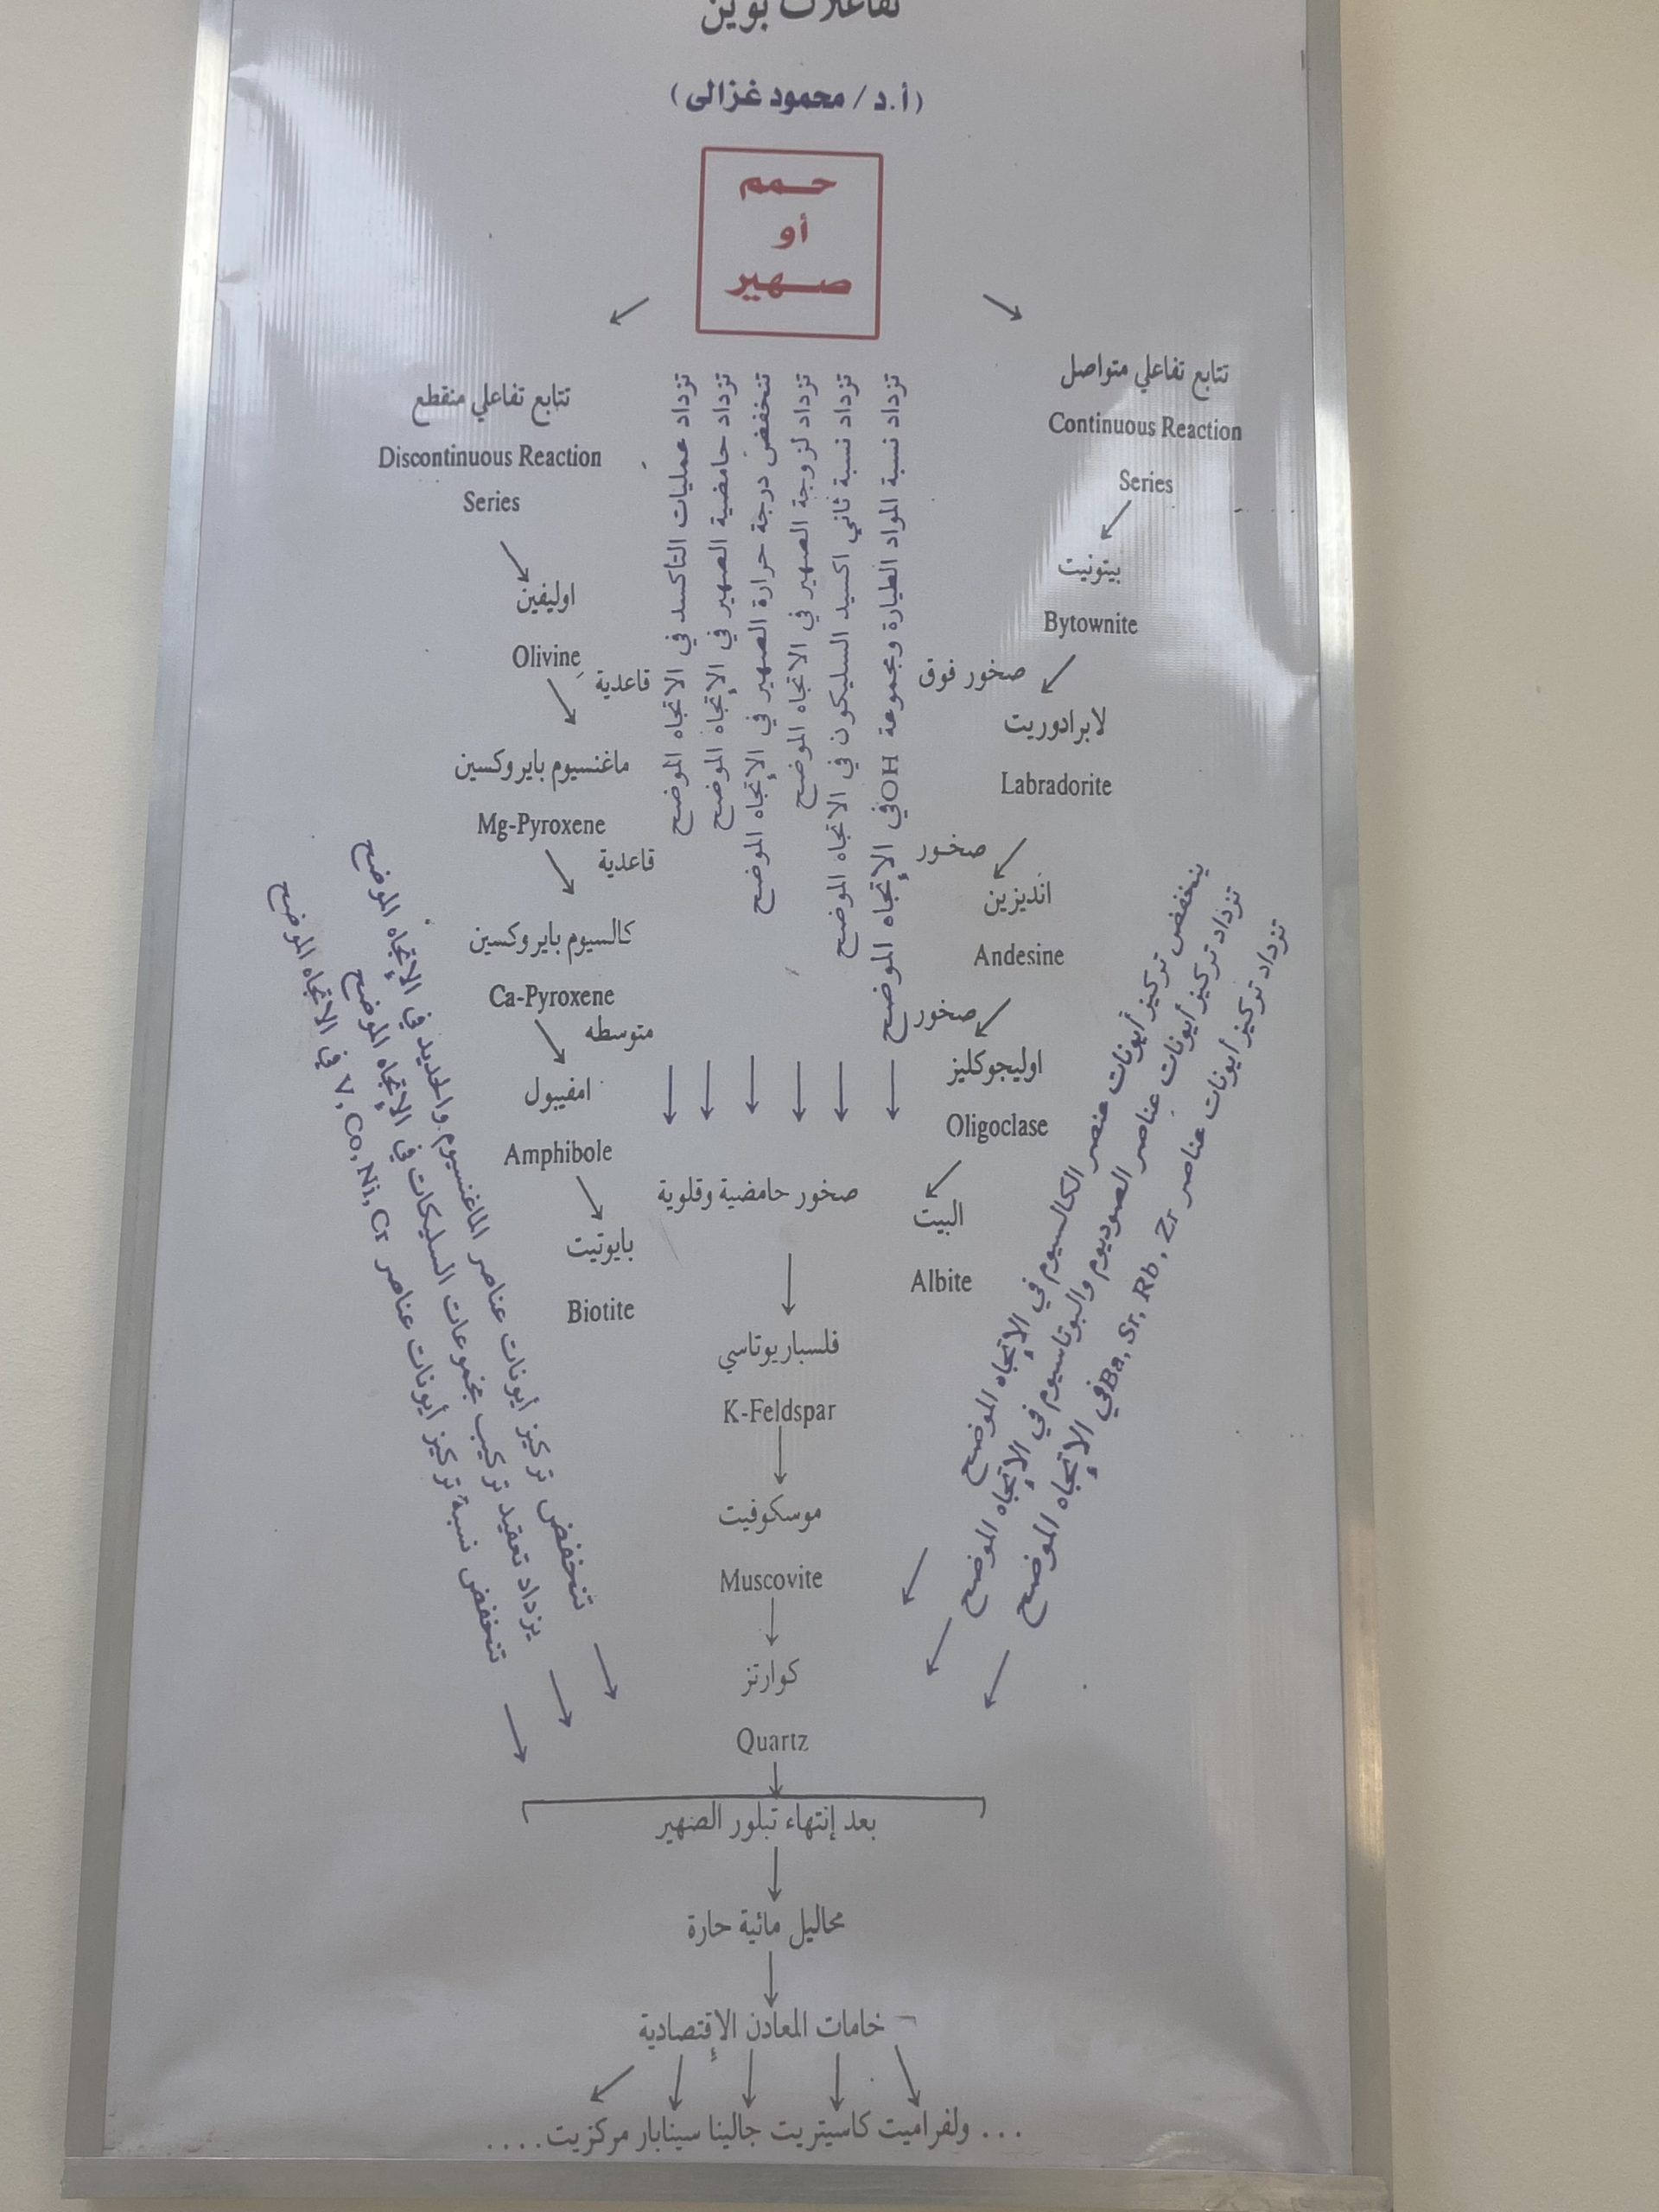 تفاعلات بوين
(أ.د/ محمود غزالى)
حمم
أو
صهير
تتابع تفاعلي متواصل
Continuous Reaction
Series
بيتونيت
Bytownite
لابرادوريت
Labradorite
انديزين
Andesine
اوليجوكليز
Oligoclase
البيت
Albite
تتابع تفاعلي منقطع
Discontinuous Reaction
Series
اوليفين
Olivine
ماغنسيوم بايروكسين
Mg-Pyroxene
كالسيوم بايروكسين
Ca-Pyroxene
امفيبول
Amphibole
بايوتيت
Biotite
صخور فوق قاعدية
صخور قاعدية
صخور متوسطه
تزداد نسبة المواد الطيارة ومجموعة OH في الإتجاه الموضح
تزداد نسبة ثاني اكسيد السليكون في الاتجاه الموضح
تزداد لزوجة الصهير في الاتجاه الموضح
تنخفض درجة حرارة الصهير في الإتجاه الموضح
تزداد حامضية الصهير في الإتجاه الموضح
تزداد عمليات التأكسد في الاتجاه الموضح
ينخفض تركيز أيونات عنصر الكالسيوم في الإتجاه الموضح
تزداد تركيز أيونات عناصر الصوديوم والبوتاسيوم في الإتجاه الموضح
تزداد تركيز أيونات عناصر Ba, Sr, Rb, Zr في الإتجاه الموضح
تنخفض تركيز أيونات عناصر الماغنسيوم والحديد في الإتجاه الموضح
يزداد تعقيد تركيب مجموعات السليكات في الإتجاه الموضح
تنخفض نسبة تركيز أيونات عناصر V, Co, Ni, Cr في الاتجاه الموضح
صخور حامضية وقلوية
فلسبار بوتاسي
K-Feldspar
موسكوفيت
Muscovite
كوارتز
Quartz
بعد إنتهاء تبلور الصهير
محاليل مائية حارة
خامات المعادن الإقتصادية
... ولفراميت كاسيتريت جالينا سينابار مركزيت....